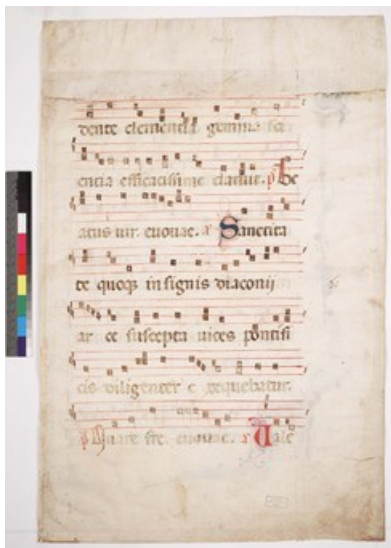 dente clementia gemma sci
entia efficacissime claruit. p Be
atus uir. euouae. a Sanctita
te quoqz insignis diaconij
ar ce suscepta uices pontifi
cis diligenter e xequebatur.
p Quare fre. euouae. a Uale